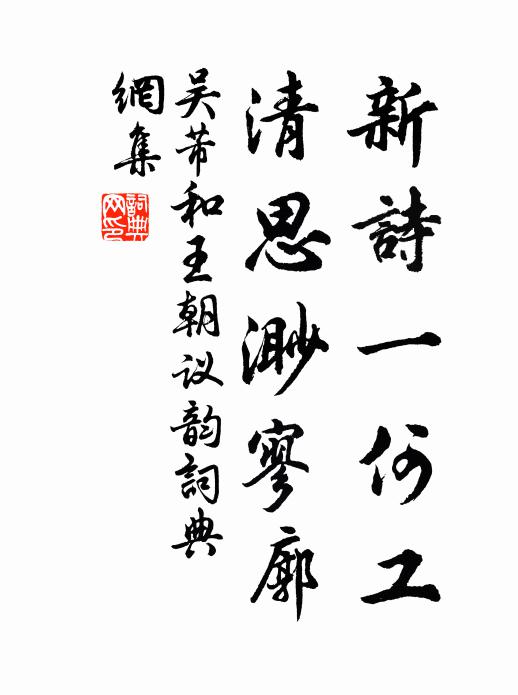 新詩一何工
清思渺寥廓
吴芾和王朝议韵詞典
網集
詞典
网印